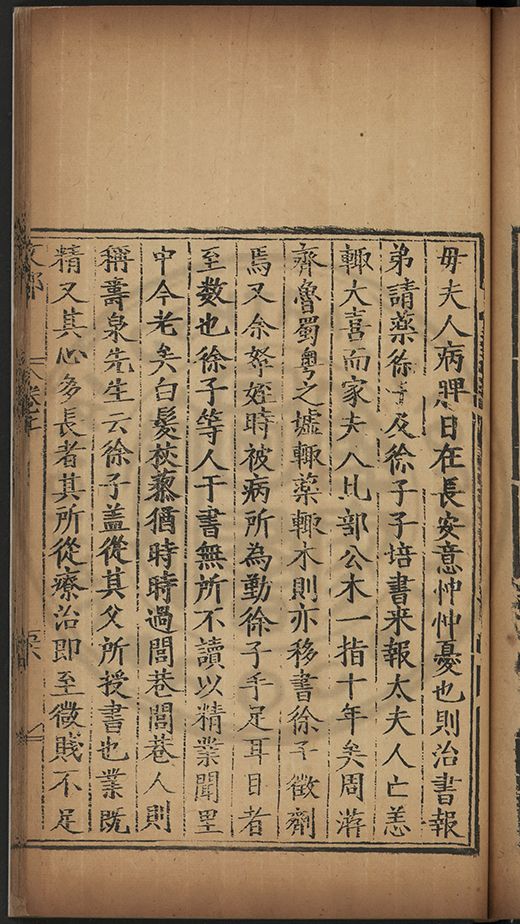 毋夫人病脾日在長安意忡忡憂也則治書報
弟請藥徐及徐子子培書來報太夫人亡恙
輙大喜而家夫人比部公木一指十年矣周游
齊魯蜀粤之墟輙藥輙木則亦移書徐子徵劑
焉又余孥姪時被病所為勤徐子手足耳目者
至数也徐子等人干書無所不讀以精業聞里
中今老矣白髪杖藜猶時時過閭巷閭巷人則
稱壽泉先生云徐子盖從其父所授書也業既
精又其心多長者其所從療治即至微賤不足
卷